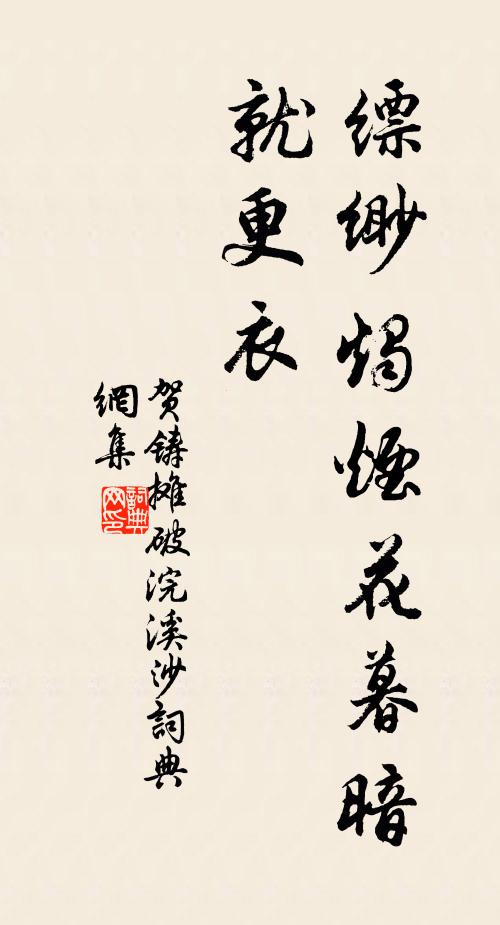 缥缈烛煙花暮暗
就更衣
贺铸摊破浣溪沙詞典
網集
詞典网印